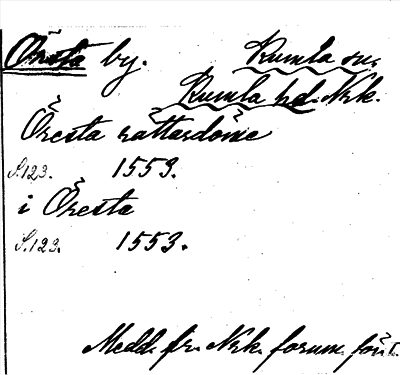 Öresta by. Kumla sn,
Kumla hd. Nrk.
Öresta rättardöme
S. 123. 1553.
i Öresta
S. 123. 1553.
Medd. fr. Nrk. fornm. för.